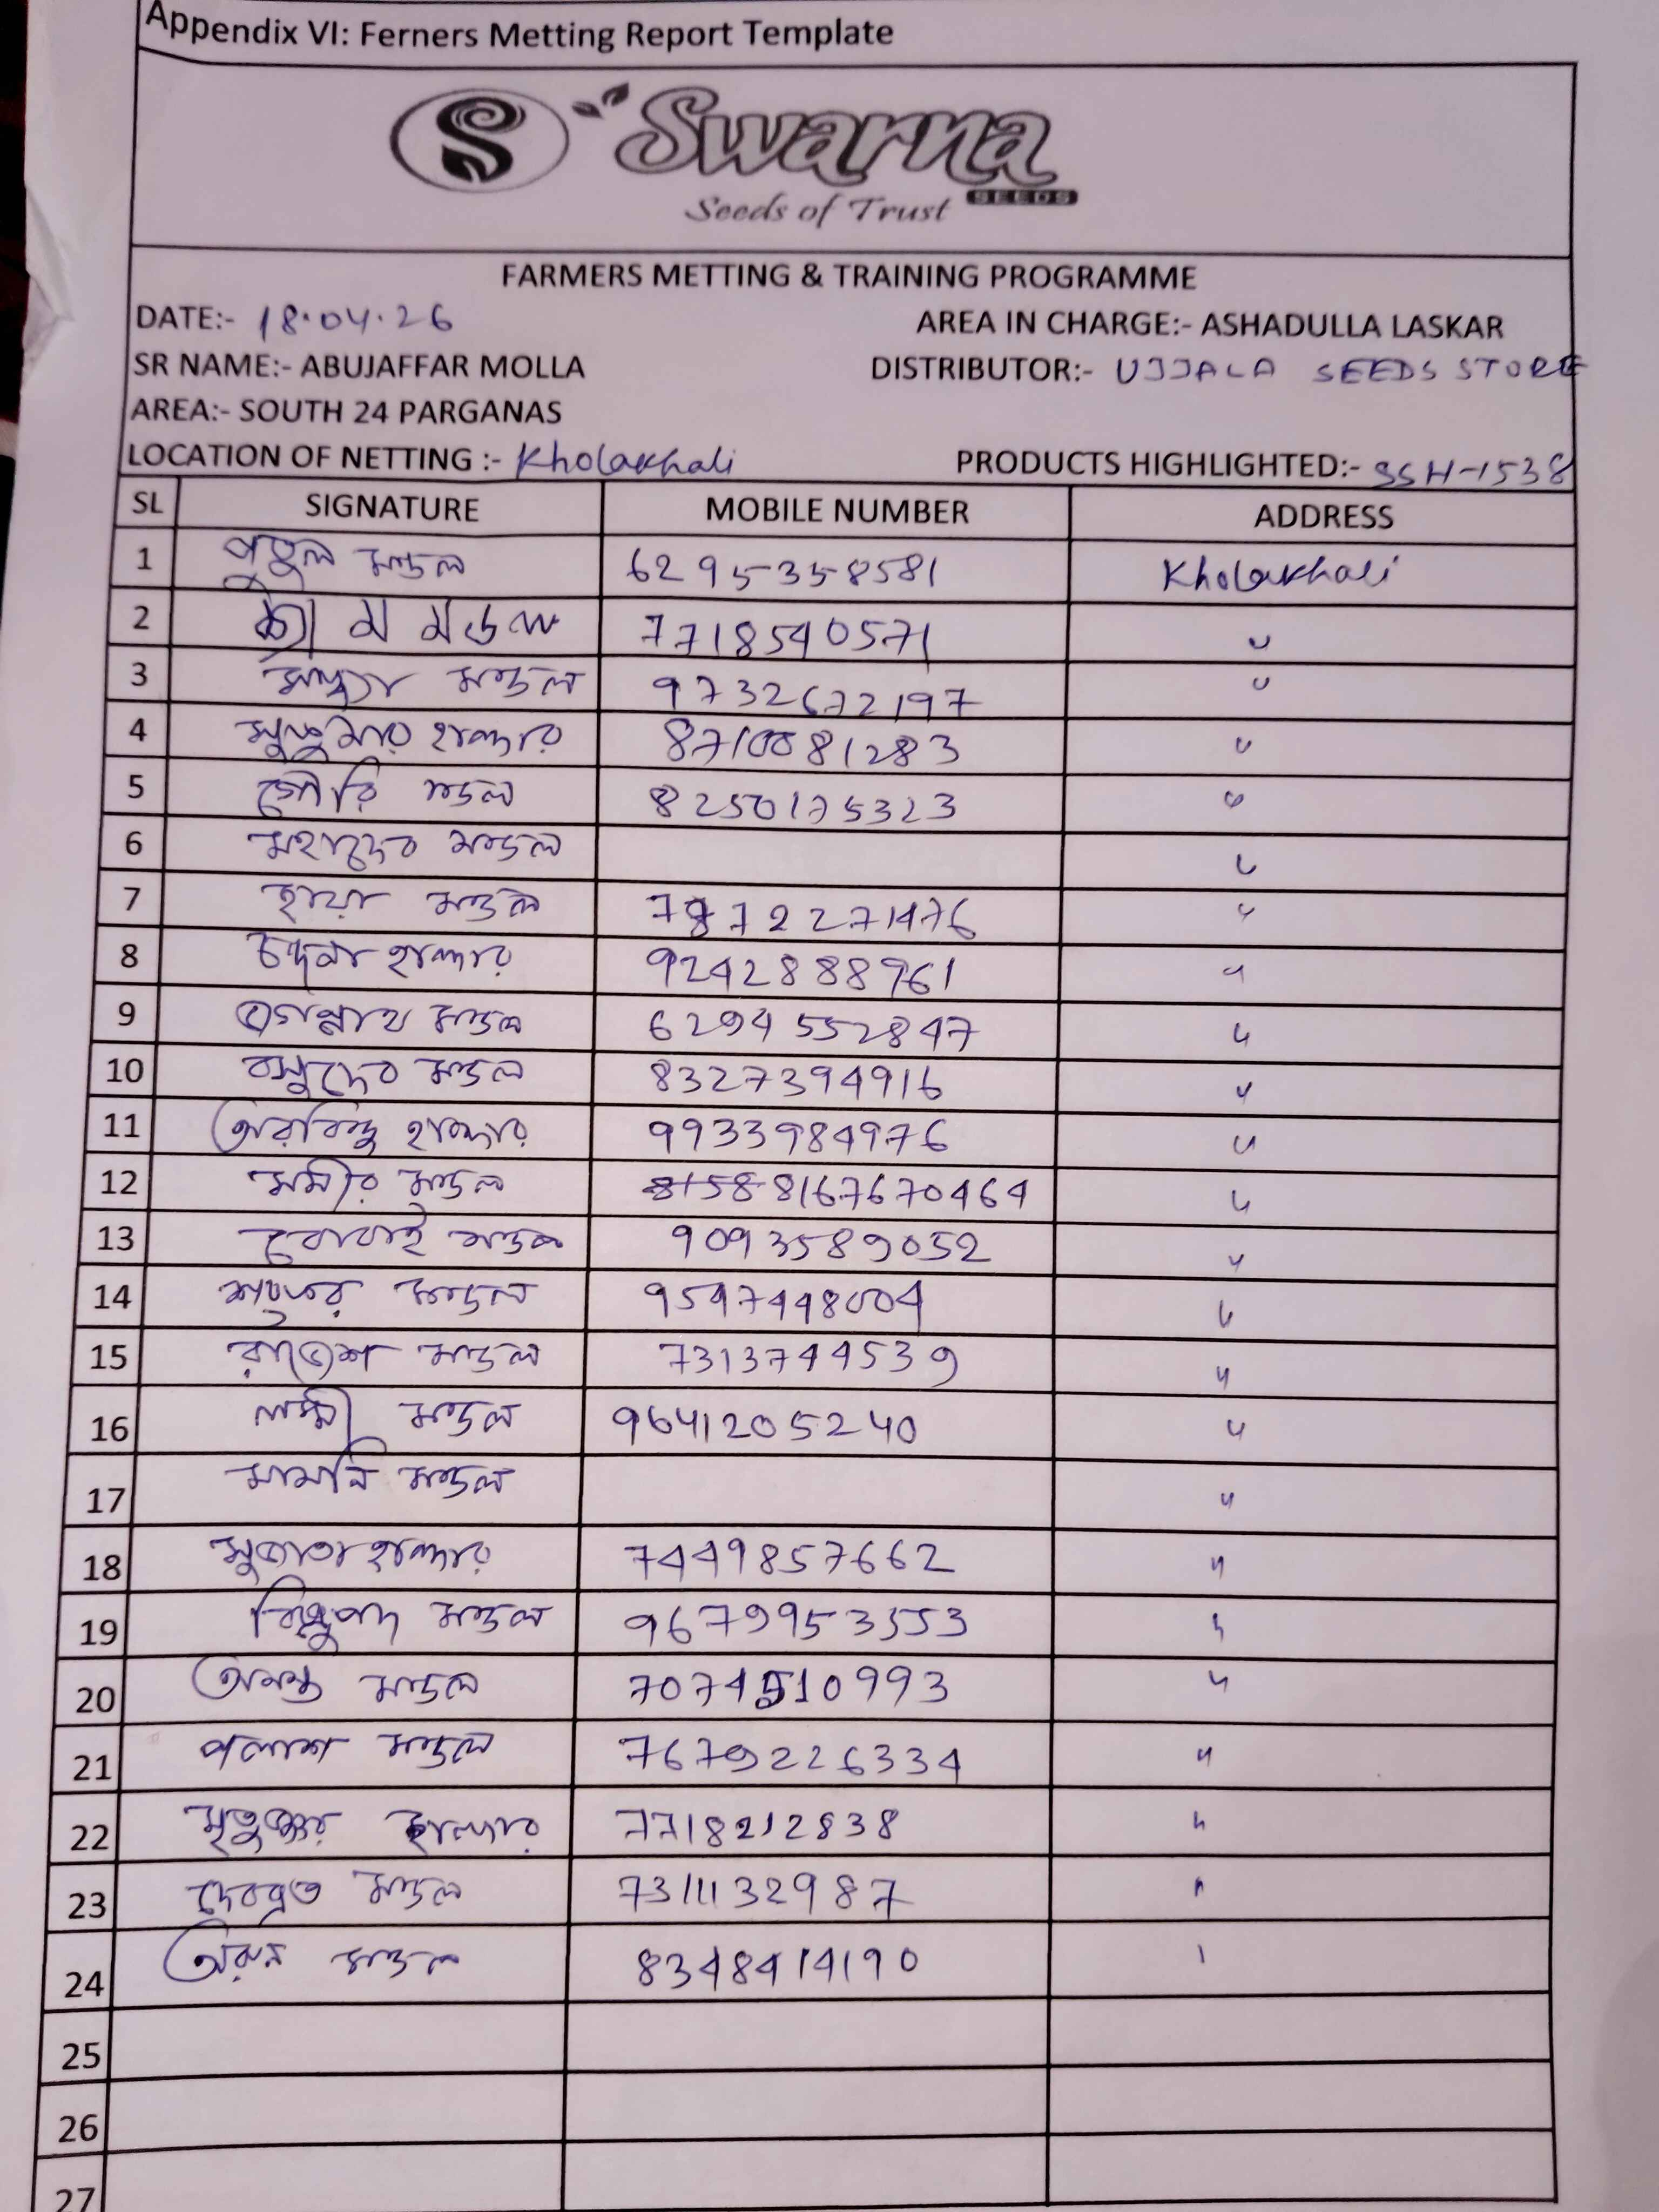 Appendix VI: Ferners Metting Report Template
S Swarna
SEEDS
Seeds of Trust
FARMERS METTING & TRAINING PROGRAMME
DATE:- 18.04.26 AREA IN CHARGE:- ASHADULLA LASKAR
SR NAME:- ABUJAFFAR MOLLA DISTRIBUTOR:- UJJALA SEEDS STORE
AREA:- SOUTH 24 PARGANAS
LOCATION OF NETTING :- Kholakhali PRODUCTS HIGHLIGHTED:- SSH-1538
SL SIGNATURE MOBILE NUMBER ADDRESS
1 পুতুল মন্ডল 6295358581 Kholakhali
2 মন্ডল 7718540571 "
3 সন্ধ্যা মন্ডল 9732672197 "
4 সুকুমার হালদার 8710081283 "
5 গৌরি মন্ডল 8250175323 "
6 মহাদেব মন্ডল "
7 ছায়া মন্ডল "
8 চন্দনা হালদার 9242888961 "
9 জগন্নাথ মন্ডল 6294552847 "
10 বসুদেব মন্ডল 8327394916 "
11 অরবিন্দু হালদার 9933984976 "
12 সমীর মন্ডল 8158 8167670464 "
13 মন্ডল 9093589052 "
14 শঙ্কর মন্ডল 9547448004 "
15 রাজেশ মন্ডল 7313744539 "
16 লক্ষ্মী মন্ডল 9641205240 "
17 মামনি মন্ডল "
18 সুজাতা হালদার 7449857662 "
19 বিষ্ণুপদ মন্ডল 9679953553 "
20 অনন্ত মন্ডল 7074510993 "
21 পলাশ মন্ডল 7679226334 "
22 হালদার 7718212838 "
23 দেবব্রত মন্ডল 7311132987 "
24 মন্ডল 8348414190 "
25
26
27